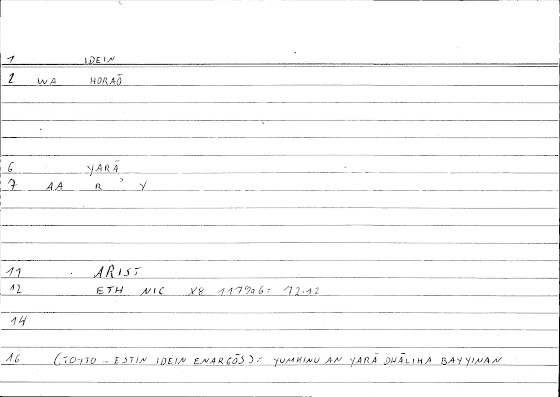 1 IDEIN
2 WA HORAŌ
6 YARĀ
7 AA R ʾ Y
11 ARIST
12 ETH NIC X8 1179a6: 72.12
14
16 (TOYTO – ESTIN IDEIN ENARGŌS): YUMKINU AN YARĀ DHĀLIKA BAYYINAN